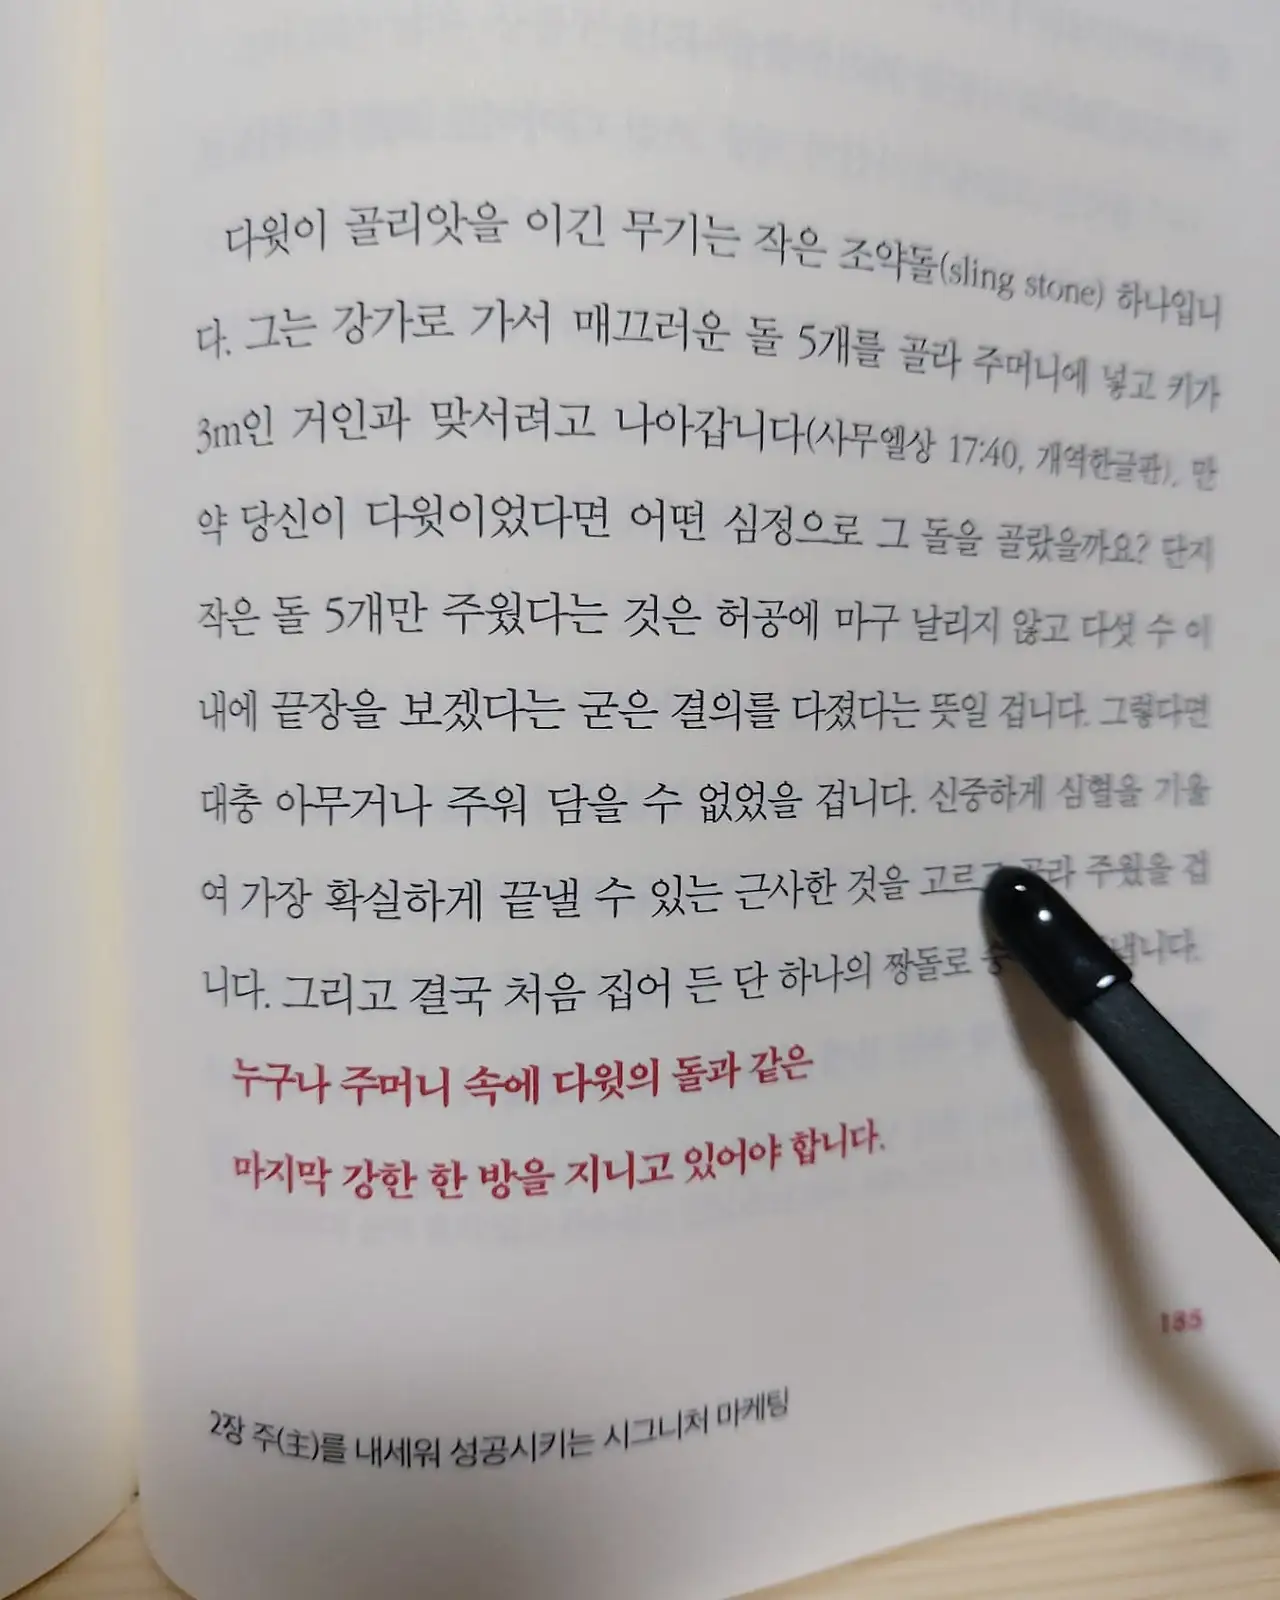 다윗이 골리앗을 이긴 무기는 작은 조약돌(sling stone) 하나입니
다. 그는 강가로 가서 매끄러운 돌 5개를 골라 주머니에 넣고 키가
3m인 거인과 맞서려고 나아갑니다(사무엘상 17:40, 개역한글판). 만
약 당신이 다윗이었다면 어떤 심정으로 그 돌을 골랐을까요? 단지
작은 돌 5개만 주웠다는 것은 허공에 마구 날리지 않고 다섯 수 이
내에 끝장을 보겠다는 굳은 결의를 다졌다는 뜻일 겁니다. 그렇다면
대충 아무거나 주워 담을 수 없었을 겁니다. 신중하게 심혈을 기울
여 가장 확실하게 끝낼 수 있는 근사한 것을 골라 주웠을 겁
니다. 그리고 결국 처음 집어 든 단 하나의 짱돌로
누구나 주머니 속에 다윗의 돌과 같은
마지막 강한 한 방을 지니고 있어야 합니다.
135
2장 주(主)를 내세워 성공시키는 시그니처 마케팅